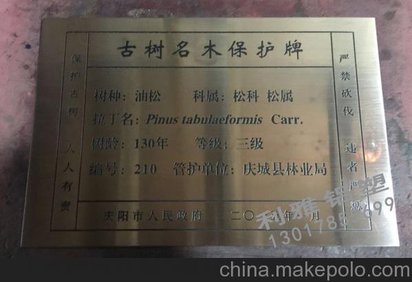 古树名木保护牌
保护古树 人人有责
严禁砍伐 违者严惩
树种：油松 科属：松科 松属
拉丁名：Pinus tabulaeformis Carr.
树龄：130年 等级：三级
编号：210 管护单位：庆城县林业局
庆阳市人民政府 二〇一 年 月
利雅铝塑
china.makepolo.com